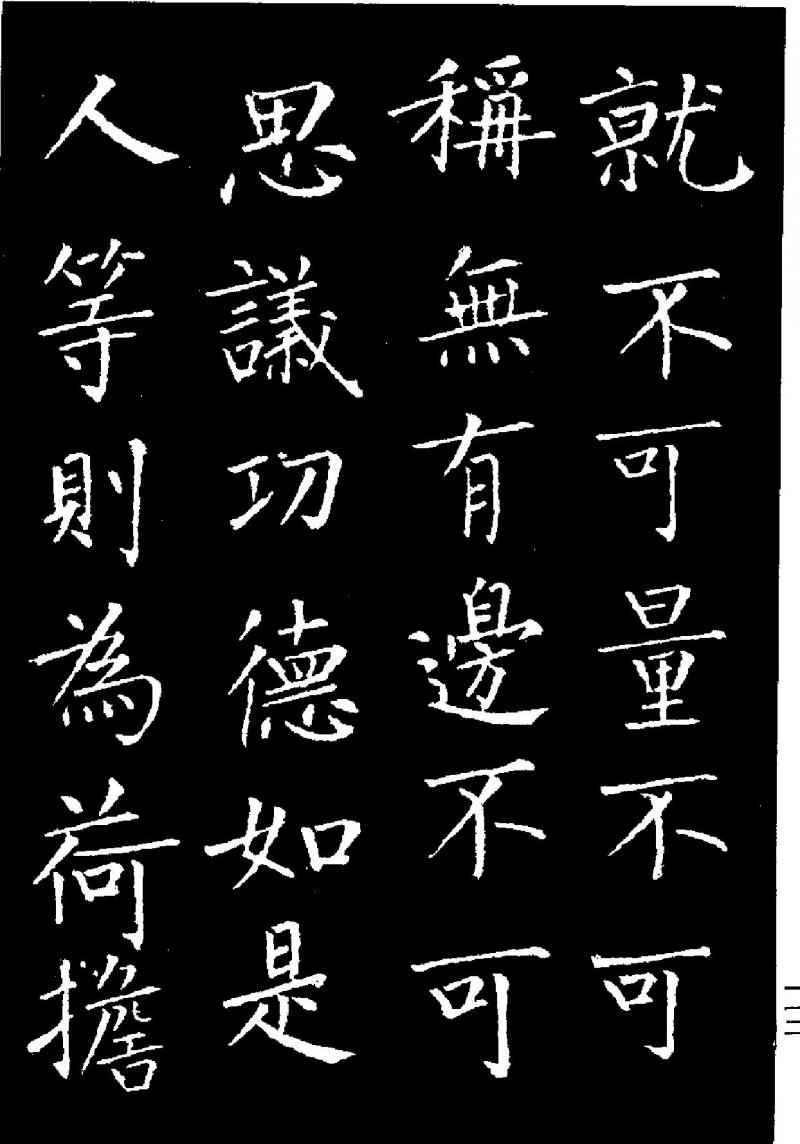 就不可量不可
稱無有邊不可
思議功德如是
人等則為荷擔
一二三